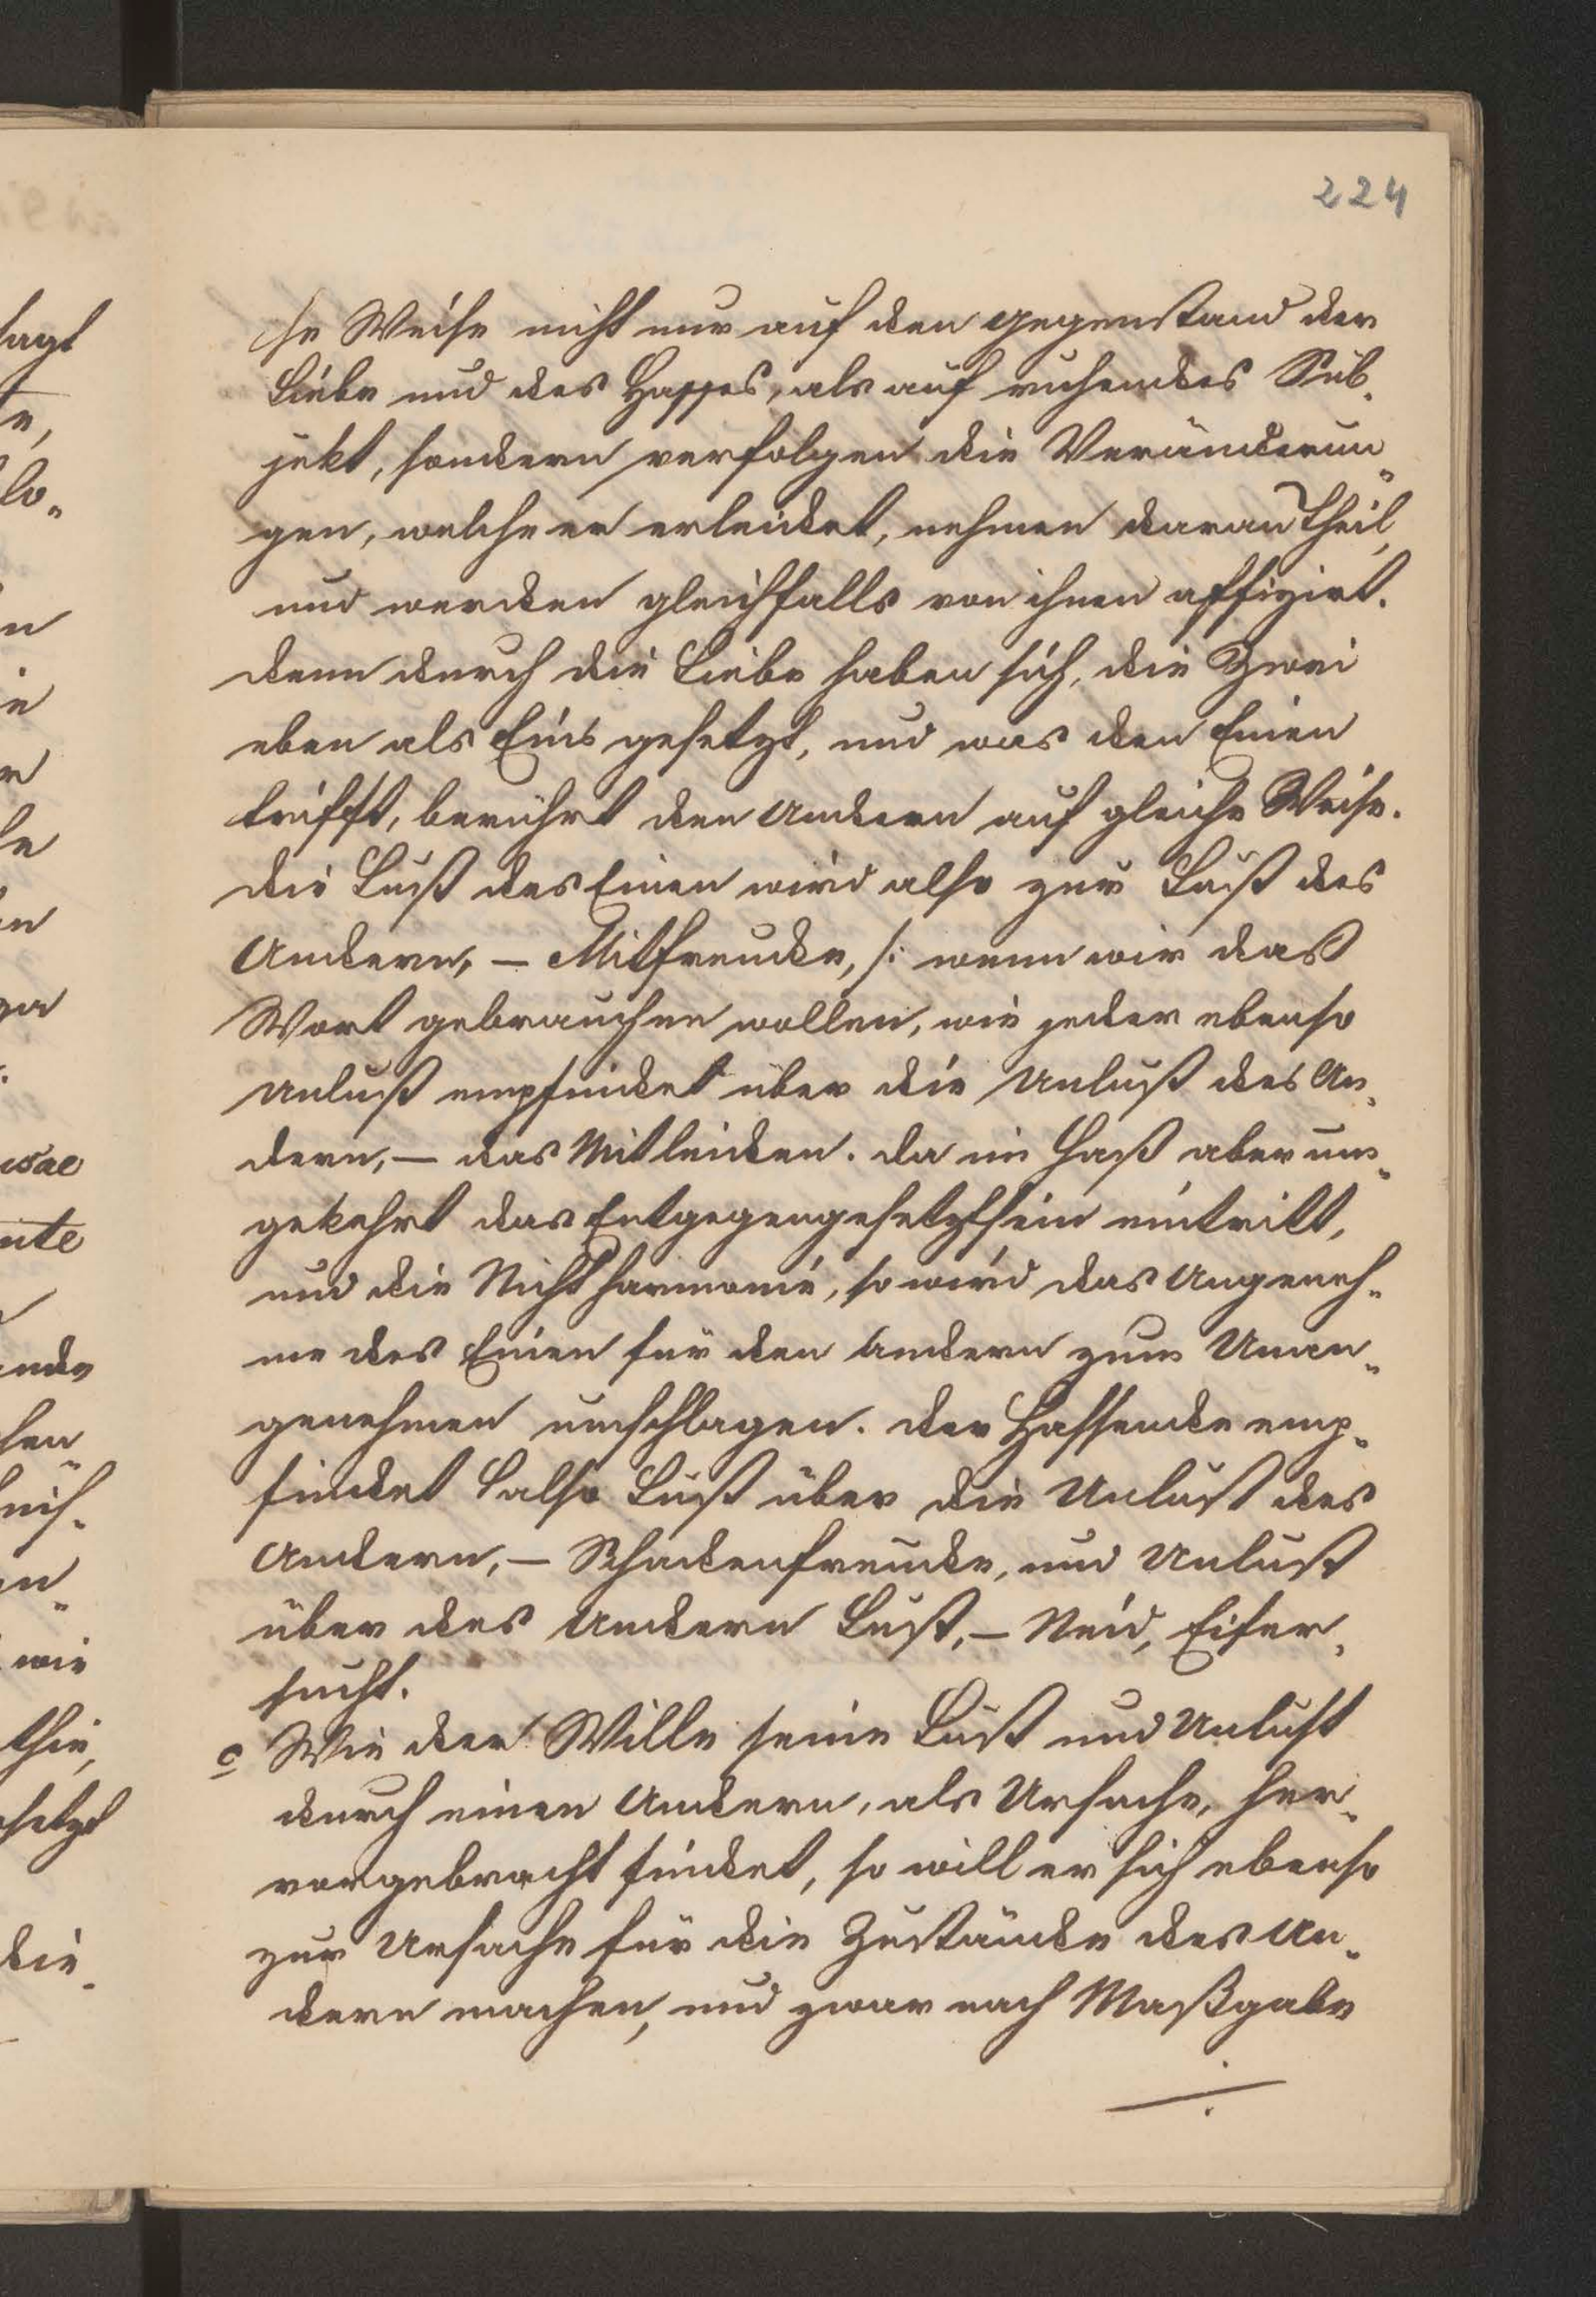 224
se Weise nicht nur auf den Gegenstand der
Liebe und des Hasses, als auf ruhendes Sub-
jekt, sondern verfolgen die Veränderun-
gen, welche er erleidet, nehmen daran Theil,
und werden gleichfalls von ihnen affizirt.
Denn durch die Liebe haben sich, die Zwei
eben als Eins gesetzt, und was den Einen
trifft, berührt den Andern auf gleiche Weise.
Die Lust des Einen wird also zur Lust des
Andern, – Mitfreude, /: wenn wir das
Wort gebrauchen wollen, wie jeder ebenso
Unlust empfindet über die Unlust des An-
dern, – das Mitleiden. Da im Haß aber um-
gekehrt das Entgegengesetztsein eintritt,
und die Nichtharmonie, so wird das Angeneh-
me des Einen für den Andern zum Unan-
genehmen umschlagen. Der Hassende emp-
findet also Lust über die Unlust des
Andern, – Schadenfreude, und Unlust
über des Andern Lust, – Neid, Eifer-
sucht.
c Wie der Wille seine Lust und Unlust
durch einen Andern, als Ursache, her-
vorgebracht findet, so will er sich ebenso
zur Ursache für die Zustände des An-
dern machen, und zwar nach Maßgabe
sagt
wie
setzt
die